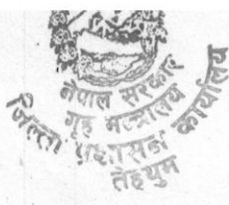 नेपाल सरकार
गृह मन्त्रालय
जिल्ला प्रशासन कार्यालय
तेह्रथुम